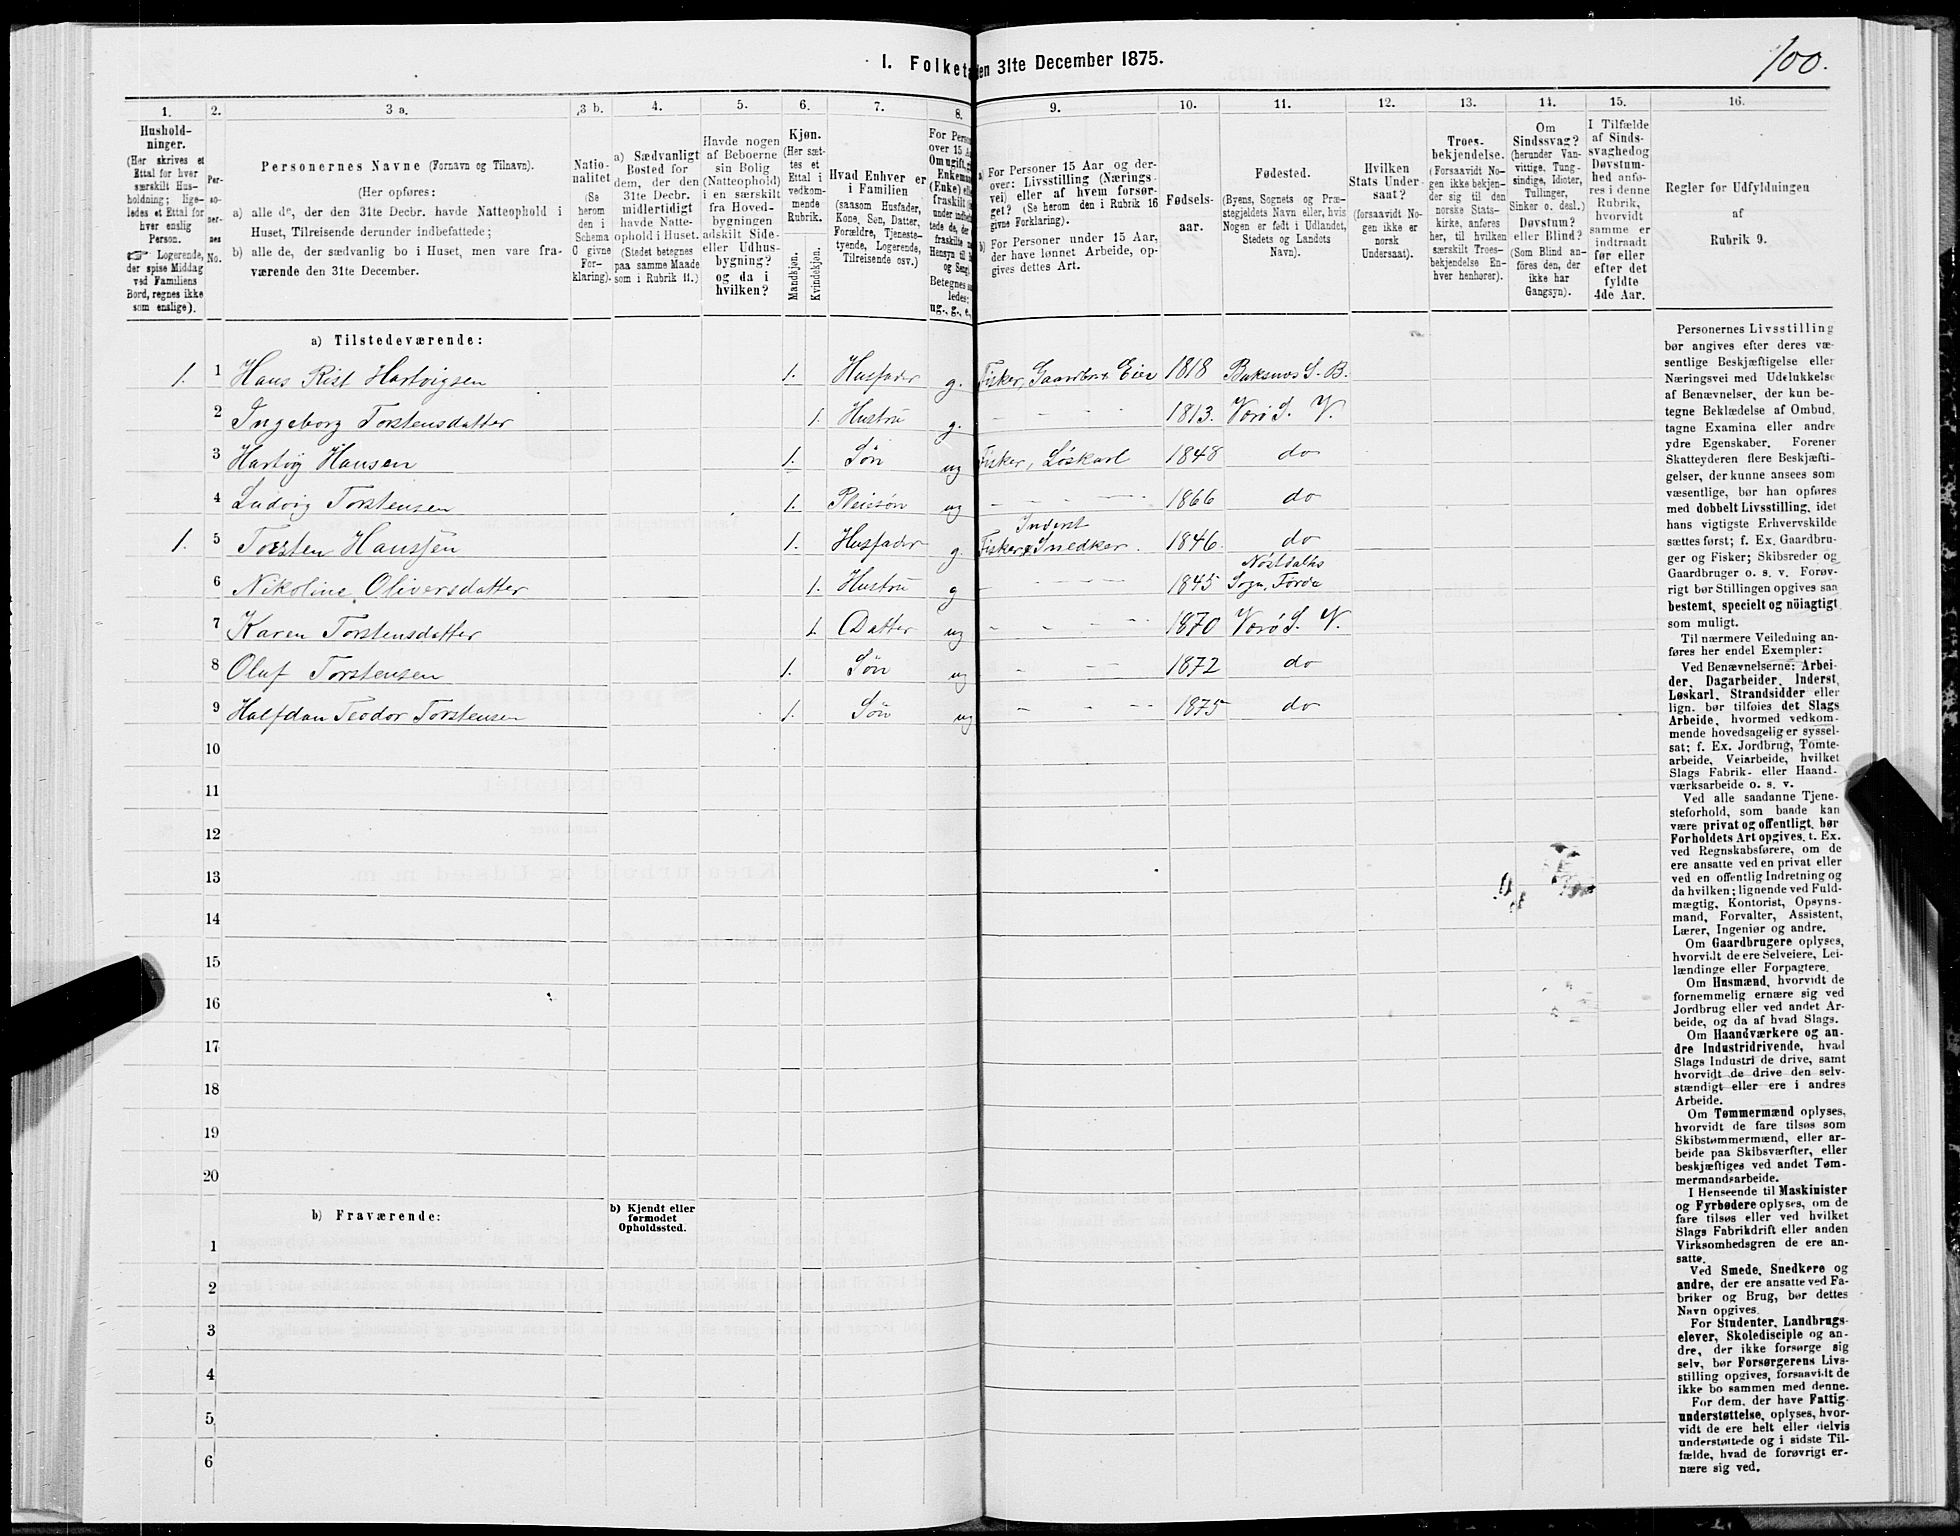 100.
I. Folketa
den 31te December 1875.
1. 2. 3 a. 3 b. 4. 5. 6. 7. 8. 9. 10. 11. 12. 13. 14. 15. 16.
Hushold-
ninger.
(Her skrives et
Ettal for hver
særskilt Hus-
holdning; lige-
ledes et Ettal for
hver enslig
Person.
☞ Logerende,
der spise Middag
ved Familiens
Bord, regnes ikke
som enslige).
Per-
so-
ner-
nes
No.
Personernes Navne (Fornavn og Tilnavn).
(Her opføres:
a) alle de, der den 31te Decbr. havde Natteophold i
Huset, Tilreisende derunder indbefattede;
b) alle de, der sædvanlig bo i Huset, men vare fra-
værende den 31te December.
Natio-
nalitet
(Se
herom
den i
Schema
O givne
For-
klaring).
a) Sædvanligt
Bosted for
dem, der den
31te Decbr.
midlertidigt
havde Natte-
ophold i Huset.
(Stedet betegnes
paa samme Maade
som i Rubrik 11.)
Havde nogen
af Beboerne
sin Bolig
(Natteophold)
i en særskilt
fra Hoved-
bygningen
adskilt Side-
eller Udhus-
bygning?
og da i
hvilken?
Kjøn.
(Her sæt-
tes et
Ettal i
vedkom-
mende
Rubrik.
Mandkjøn.
Kvindekjøn.
Hvad Enhver er
i Familien
(saasom Husfader,
Kone, Søn, Datter,
Forældre, Tjeneste-
tyende, Logerende,
Tilreisende osv.)
For Perso
over 15 A
Om ugift, gi
Enkeman
(Enke) elle
fraskilt
under indbe
tede de, der
fraskilte
Hensyn til B
og Seng
Betegnes sa
ledes:
ug., g., e.,
a) For Personer 15 Aar og der-
over: Livsstilling (Nærings-
vei) eller af hvem forsør-
get? (Se herom den i Rubrik 16
givne Forklaring).
b) For Personer under 15 Aar,
der have lønnet Arbeide, op-
gives dettes Art.
Fødsels-
aar.
Fødested.
(Byens, Sognets og Præ-
stegjeldets Navn eller, hvis
Nogen er født i Udlandet,
Stedets og Landets
Navn).
Hvilken
Stats Under-
saat?
(forsaavidt No-
gen ikke er
norsk
Undersaat).
Troes-
bekjendelse.
(Forsaavidt No-
gen ikke bekjen-
der sig til den
norske Stats-
kirke, anføres
her, til hvilken
særskilt Troes-
bekjendelse En-
hver henhører).
Om
Sindssvag?
(herunder Van-
vittige, Tung-
sindige, Idioter,
Tullinger,
Sinker o. desl.)
Døvstum?
eller Blind?
(Som Blind an-
føres den, der
ikke har
Gangsyn).
I Tilfælde
af Sinds-
svaghed og
Døvstum-
hed anfø-
res i denne
Rubrik,
hvorvidt
samme er
indtraadt
før eller
efter det
fyldte
4de Aar.
Regler for Udfyldningen
af
Rubrik 9.
a) Tilstedeværende:
1. 1 Hans Rist Hartvigsen 1. Husfader g. Fisker, Gaardbr Eier 1818 Buksnes S. B.
2 Ingeborg Torstensdatter 1. Hustru g. 1813. Værø S. V.
3 Hartvig Hansen 1. Søn ug Fisker, Løskarl 1848 do
4 Ludvig Torstensen 1. Pleiesøn ug 1866 do
Inderst
1. 5 Torsten Hanssen 1. Husfader g. Fisker, Snedker. 1846. do
6 Nikoline Oliversdatter 1. Hustru g 1845 Sogn, Førde
7 Karen Torstensdatter 1. Datter ug 1870 Værø S. V.
8 Oluf Torstensen 1. Søn ug 1872 do
9 Halfdan Teodor Torstensen 1. Søn ug 1875 do
10
11
12
13
14
15
16
17
18
19
20
b) Fraværende:
b) Kjendt eller
formodet
Opholdssted.
1
2
3
4
5
6
Personernes Livsstilling
bør angives efter deres væ-
sentlige Beskjæftigelse eller
Næringsvei med Udelukkelse
af Benævnelser, der kun be-
tegne Beklædelse af Ombud,
tagne Examina eller andre
ydre Egenskaber. Forener
Skatteyderen flere Beskjæfti-
gelser, der kunne ansees som
væsentlige, bør han opføres
med dobbelt Livsstilling, idet
hans vigtigste Erhvervskilde
sættes først; f. Ex. Gaardbru-
ger og Fisker; Skibsreder og
Gaardbruger o. s. v. Forøv-
rigt bør Stillingen opgives saa
bestemt, specielt og nöiagtigt
som muligt.
Til nærmere Veiledning an-
føres her endel Exempler:
Ved Benævnelserne: Arbei-
der, Dagarbeider, Inderst,
Løskarl, Strandsidder eller
lign. bør tilføies det Slags
Arbeide, hvormed vedkom-
mende hovedsagelig er syssel-
sat; f. Ex. Jordbrug, Tomte-
arbeide, Veiarbeide, hvilket
Slags Fabrik- eller Haand-
værksarbeide o. s. v.
Ved alle saadanne Tjene-
steforhold, som baade kan
være privat og offentligt, bør
Forholdets Art opgives, t. Ex.
ved Regnskabsførere, om de
ere ansatte ved en privat eller
ved en offentlig Indretning og
da hvilken; lignende ved Fuld-
mægtig, Kontorist, Opsyns-
mand, Forvalter, Assistent,
Lærer, Ingeniør og andre.
Om Gaardbrugere oplyses,
hvorvidt de ere Selveiere, Lei-
lændinge eller Forpagtere.
Om Husmænd, hvorvidt de
fornemmelig ernære sig ved
Jordbrug eller ved andet Ar-
beide, og da af hvad Slags.
Om Haandværkere og an-
dre Industridrivende, hvad
Slags Industri de drive, samt
hvorvidt de drive den selv-
stændigt eller ere i andres
Arbeide.
Om Tømmermænd oplyses,
hvorvidt de fare tilsøs som
Skibstømmermænd, eller ar-
beide paa Skibsværfter, eller
beskjæftiges ved andet Tøm-
mermandsarbeide.
I Henseende til Maskinister
og Fyrbødere oplyses, om de
fare tilsøs eller ved hvilket
Slags Fabrikdrift eller anden
Virksomhedsgren de ere an-
satte.
Ved Smede, Snedkere og
andre, der ere ansatte ved Fa-
briker og Brug, bør dettes
Navn opgives.
For Studenter, Landbrugs-
elever, Skoledisciple og an-
dre, der ikke forsørge sig
selv, bør Forsørgerens Livs-
stilling opgives, forsaavidt de
ikke bo sammen med denne.
For dem, der have Fattig-
understøttelse, oplyses, hvor-
vidt de ere helt eller delvis
understøttede og i sidste Til-
fælde, hvad de forøvrigt er-
nære sig ved.